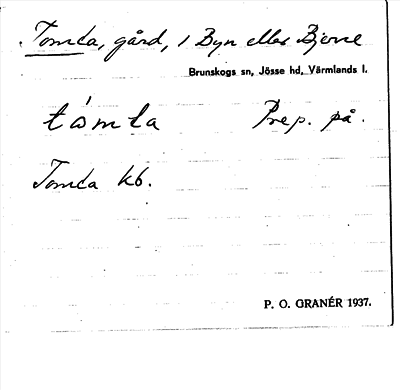 Tomta, gård, i Byn eller Bjerne
Brunskogs sn, Jösse hd, Värmlands l.
tómta Prep. på.
Tomta kb.
P. O. GRANÉR 1937.